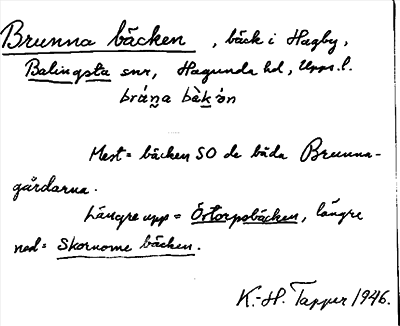 Brunna bäcken, bäck i Hagby,
Balingsta snr, Hagunda hd, Upps. l.
brúna bàkòn
Mest = bäcken SO de båda Brunna-
gårdarna.
Längre upp = Östorpsbäcken, längre
ned = Skornome bäcken.
K.-H. Tapper 1946.